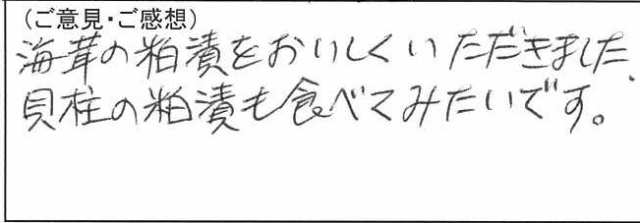 （ご意見・ご感想）
海茸の粕漬をおいしくいただきました、
貝柱の粕漬も食べてみたいです。